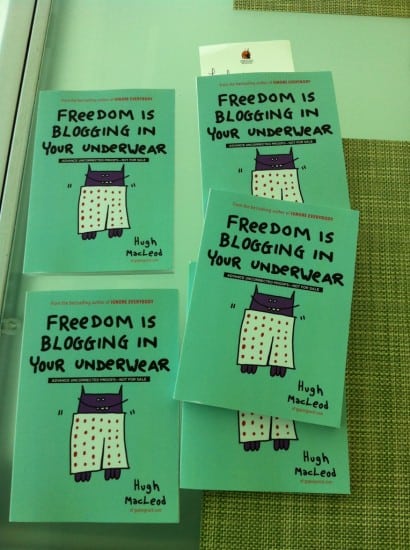 From the bestselling author of IGNORE EVERYBODY
FREEDOM IS
BLOGGING IN
YOUR UNDERWEAR
ADVANCE UNCORRECTED PROOFS—NOT FOR SALE
Hugh
MacLeod
of gapingvoid.com
From the bestselling author of IGNORE EVERYBODY
FREEDOM IS
BLOGGING IN
YOUR UNDERWEAR
ADVANCE UNCORRECTED PROOFS—NOT FOR SALE
From the bestselling author of IGNORE EVERYBODY
FREEDOM IS
BLOGGING IN
YOUR UNDERWEAR
ADVANCE UNCORRECTED PROOFS—NOT FOR SALE
Hugh
MacLeod
of gapingvoid.com
From the bestselling author of IGNORE EVERYBODY
FREEDOM IS
BLOGGING IN
YOUR UNDERWEAR
ADVANCE UNCORRECTED PROOFS—NOT FOR SALE
Hugh
MacLeod
of gapingvoid.com
Hugh
MacLeod
of gapingvoid.com